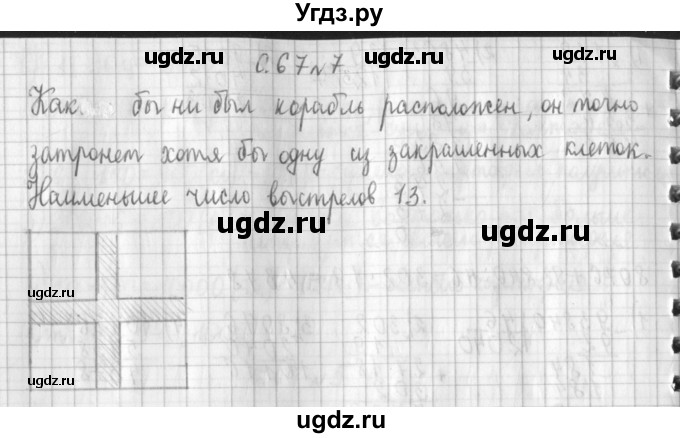 Угдз.ру
ugdz.ru ugdz.ru
С.67№7
Как бы ни был корабль расположен, он точно
затронет хотя бы одну из закрашенных клеток.
Наименьшее число выстрелов 13.
ugdz.ru ugdz.ru
ugdz.ru
ugdz.ru ugdz.ru ugdz.ru
ugdz.ru
ugdz.ru